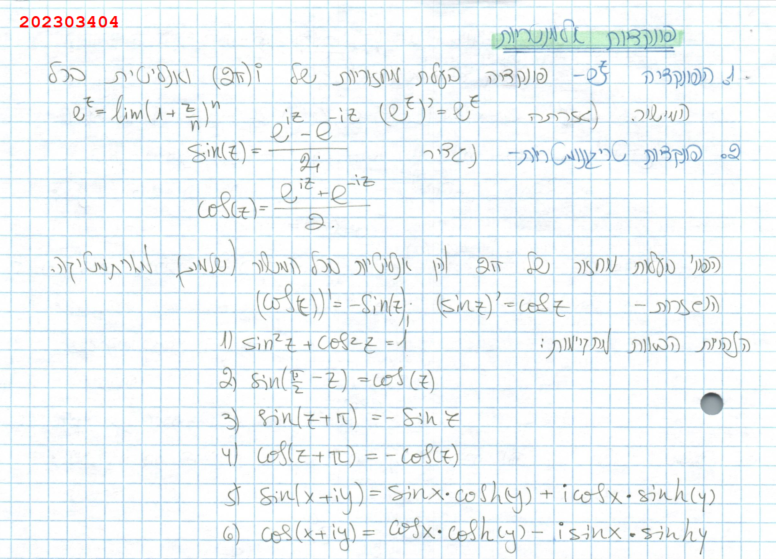 202303404
פונקציות אלמנטריות
1. הפונקציה e^z - פונקציה בעלת מחזוריות של (2π)i ואנליטית בכל
המישור. נגזרתה (e^z)' = e^z e^z = lim(1+z/n)^n
2. פונקציות טריגונומטריות - נגדיר sin(z) = (e^{iz} - e^{-iz})/2i
cos(z) = (e^{iz} + e^{-iz})/2.
הפונ' בעלות מחזור של 2π והן אנליטיות בכל המישור (שלמות)
הנגזרות - (sin z)' = cos z ; (cos(z))' = -sin(z)
הזהויות הבאות מתקיימות:
1) sin²z + cos²z = 1
2) sin(π/2 - z) = cos(z)
3) sin(z+π) = -sin z
4) cos(z+π) = -cos(z)
5) sin(x+iy) = sinx·cosh(y) + icosx·sinh(y)
6) cos(x+iy) = cosx·cosh(y) - isinx·sinhy